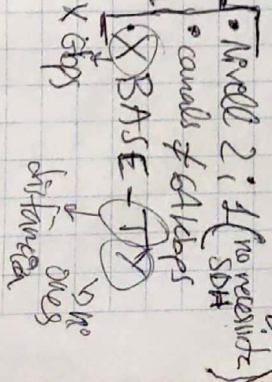 • Nivell 2 i 1 (no necessita SDH)
• canals ≠ 64 kbps
• X BASE - T Y
X Gbps
distància
nº ones